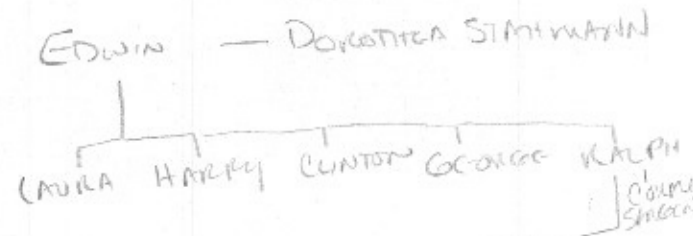 EDWIN — DOROTHEA
LAURA HARRY CLINTON GEORGE RALPH